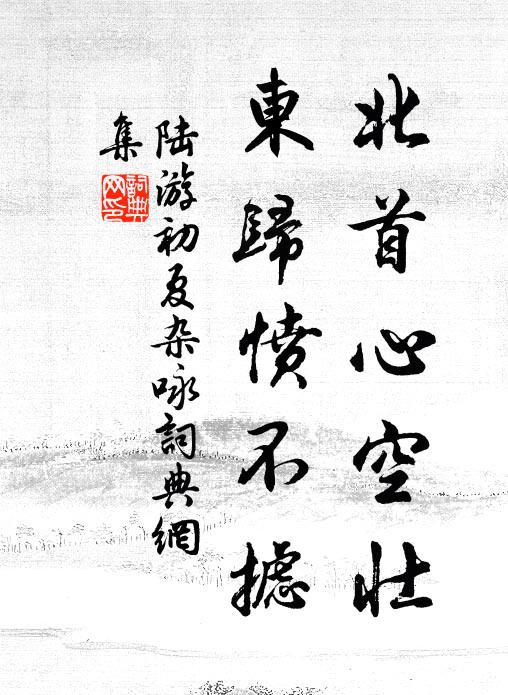 北首心空壯
東歸憤不攄
陸游初夏杂咏詞典網
集
詞典
网印